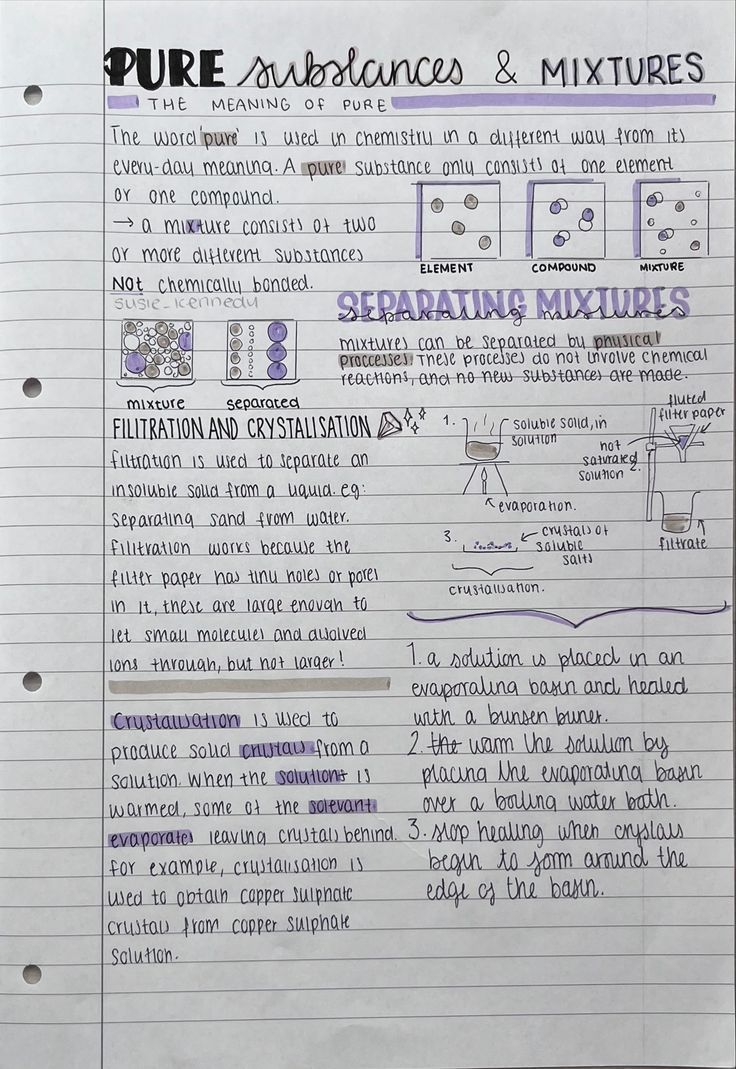 PURE substances & MIXTURES
THE MEANING OF PURE
The word 'pure' is used in chemistry in a different way from its
every-day meaning. A pure substance only consists of one element
or one compound.
→ a mixture consists of two
or more different substances
NOT chemically bonded.
ELEMENT
COMPOUND
MIXTURE
susie_kennedy
mixture
separated
SEPARATING MIXTURES
separating mixtures
mixtures can be separated by physical
proccesses. These processes do not involve chemical
reactions, and no new substances are made.
FILITRATION AND CRYSTALISATION
filtration is used to separate an
insoluble solid from a liquid. eg:
separating sand from water.
filitration works because the
filter paper has tiny holes or pores
in it, these are large enough to
let small molecules and disolved
ions through, but not larger!
1.
soluble solid, in
solution
evaporation.
fluted
filter paper
not
saturated
solution 2.
filtrate
3.
crystals of
soluble
salts
crystalisation.
Crystalisation is used to
produce solid crystals from a
solution. When the solutions is
warmed, some of the solevant
evaporates leaving crystals behind.
for example, crystalisation is
used to obtain copper sulphate
crystals from copper sulphate
solution.
1. a solution is placed in an
evaporating basin and heated
with a bunsen buner.
2. the warm the solution by
placing the evaporating basin
over a boiling water bath.
3. stop heating when crystals
begin to form around the
edge of the basin.